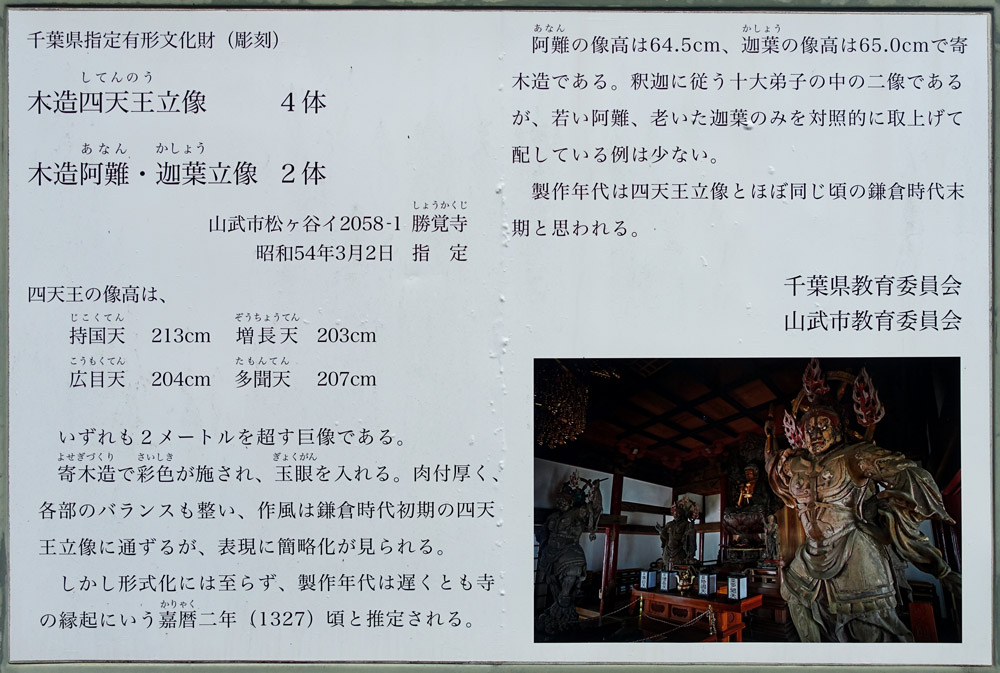 千葉県指定有形文化財（彫刻）
してんのう
木造四天王立像　　　４体
あなん　かしょう
木造阿難・迦葉立像　２体
しょうかくじ
山武市松ヶ谷イ2058-1 勝覚寺
昭和54年3月2日　指　定
四天王の像高は、
じこくてん　ぞうちょうてん
持国天　213cm　増長天　203cm
こうもくてん　たもんてん
広目天　204cm　多聞天　207cm
いずれも２メートルを超す巨像である。
よせぎづくり　さいしき　ぎょくがん
寄木造で彩色が施され、玉眼を入れる。肉付厚く、
各部のバランスも整い、作風は鎌倉時代初期の四天
王立像に通ずるが、表現に簡略化が見られる。
しかし形式化には至らず、製作年代は遅くとも寺
かりゃく
の縁起にいう嘉暦二年（1327）頃と推定される。
あなん　かしょう
阿難の像高は64.5cm、迦葉の像高は65.0cmで寄
木造である。釈迦に従う十大弟子の中の二像である
が、若い阿難、老いた迦葉のみを対照的に取上げて
配している例は少ない。
製作年代は四天王立像とほぼ同じ頃の鎌倉時代末
期と思われる。
千葉県教育委員会
山武市教育委員会